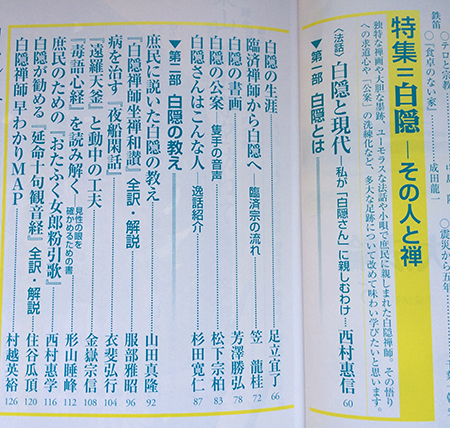 鉄笛
○テロと宗教
○「食卓のない家」
成田龍一
○震災から五年
特集=白隠―その人と禅
独特な禅画や大胆な墨跡、ユーモラスな法話や小唄で庶民に親しまれた白隠禅師。その悟り
への求道心や「公案」の洗練化など、多大な足跡について改めて味わい学びたいと思います。
〈法話〉白隠と現代―私が「白隠さん」に親しむわけ……西村惠信 60
▼第一部 白隠とは
白隠の生涯……足立宜了 66
臨済禅師から白隠へ―臨済宗の流れ……笠 龍桂 72
白隠の書画……芳澤勝弘 78
白隠の公案―隻手の音声……松下宗柏 83
白隠さんはこんな人―逸話紹介……杉田寛仁 87
▼第二部 白隠の教え
庶民に説いた白隠の教え……山田真隆 92
『白隠禅師坐禅和讃』全訳・解説……服部雅昭 96
病を治す『夜船閑話』……衣斐弘行 104
『遠羅天釜』と動中の工夫……金嶽宗信 108
『毒語心経』を読み解く―見性の眼を確かめるための書……形山睡峰 112
庶民のための『おたふく女郎粉引歌』……西村惠学 116
白隠が勧める『延命十句観音経』全訳・解説……住谷瓜頂 120
白隠禅師 早わかりMAP……村越英裕 126